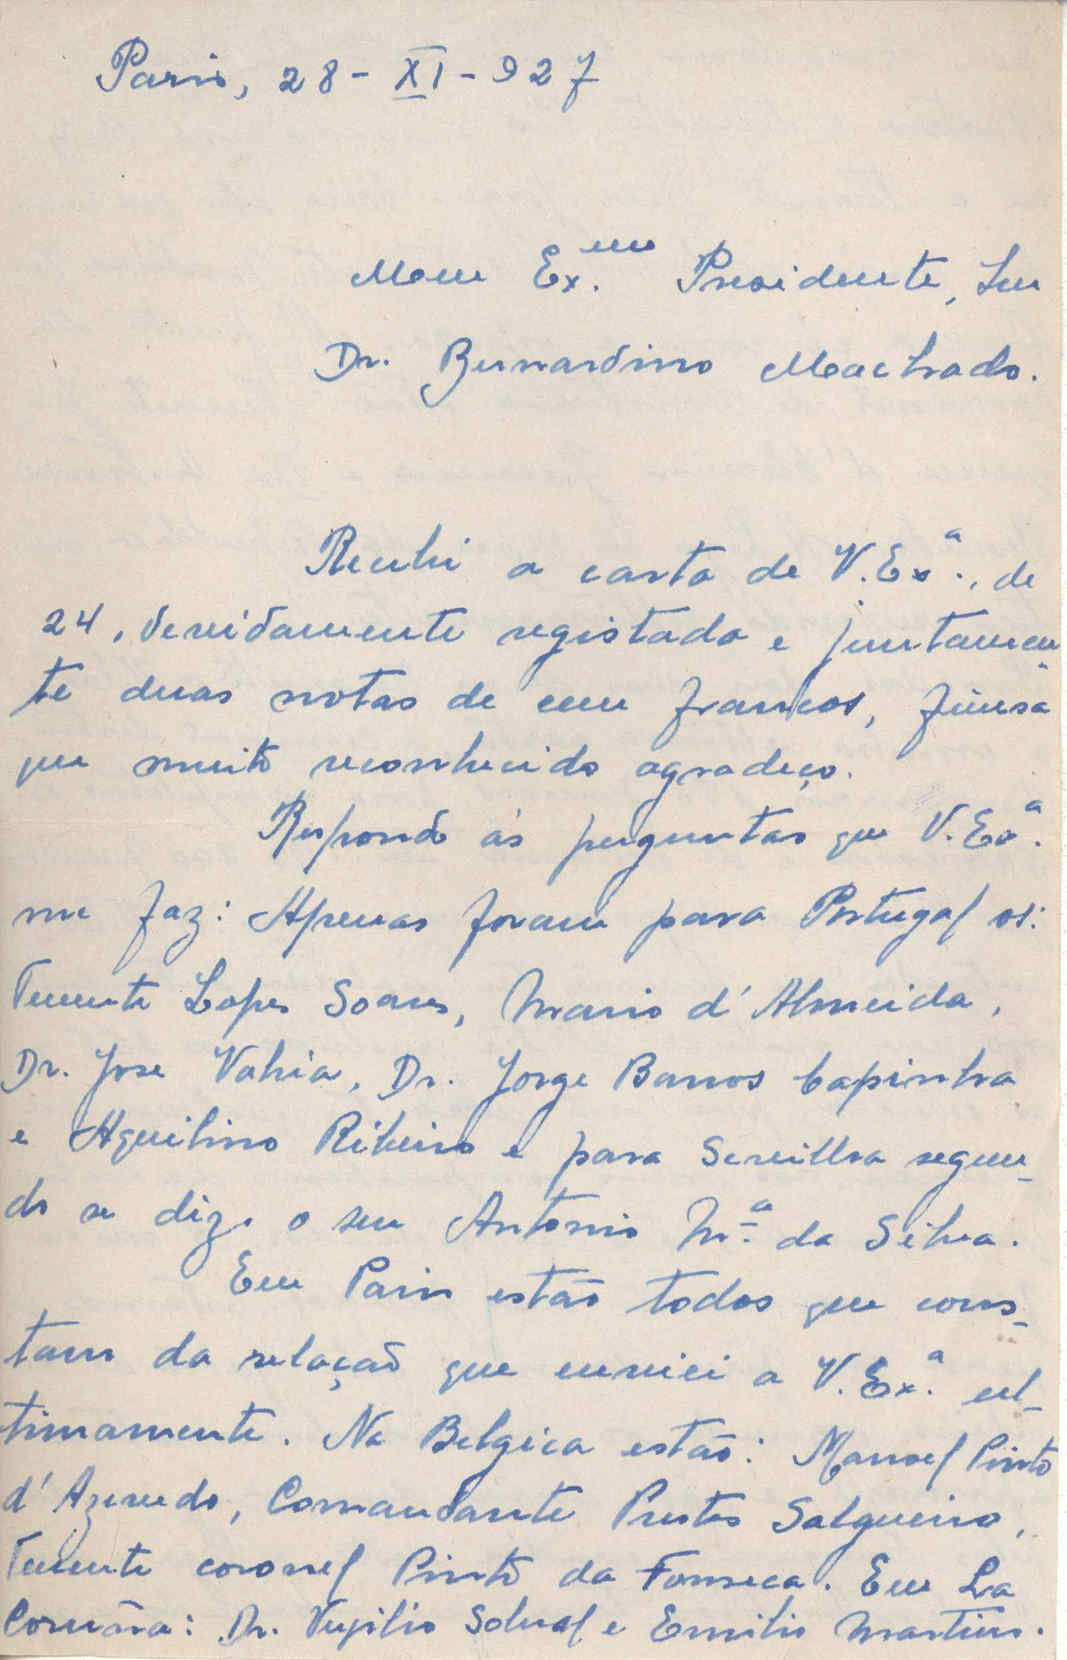 Paris, 28-XI-927
Meu Ex.mo Presidente, Snr
Dr. Bernardino Machado.
Recebi a carta de V. Ex.ª, de
24, devidamente registada e juntamen
te duas notas de cem francos, finesa
que muito reconhecido agradeço.
Respondo ás perguntas que V. Ex.ª
me faz: Apenas foram para Portugal os:
Tenente Lopes Soares, Mario d'Almeida,
Dr. Jose Vahia, Dr. Jorge Barros Capinha
e Aquilino Ribeiro e para Sevilha segun-
do se diz, o seu Antonio M.ª da Silva.
Em Paris estão todos que cons-
tam da relação que enviei a V. Ex.ª ul-
timamente. Na Belgica estão: Manoel Pinto
d'Azevedo, Comandante Prestes Salgueiro,
Tenente coronel Pinto da Fonseca. Em La
Coruña: Dr. Virgilio e Emilio Martins.